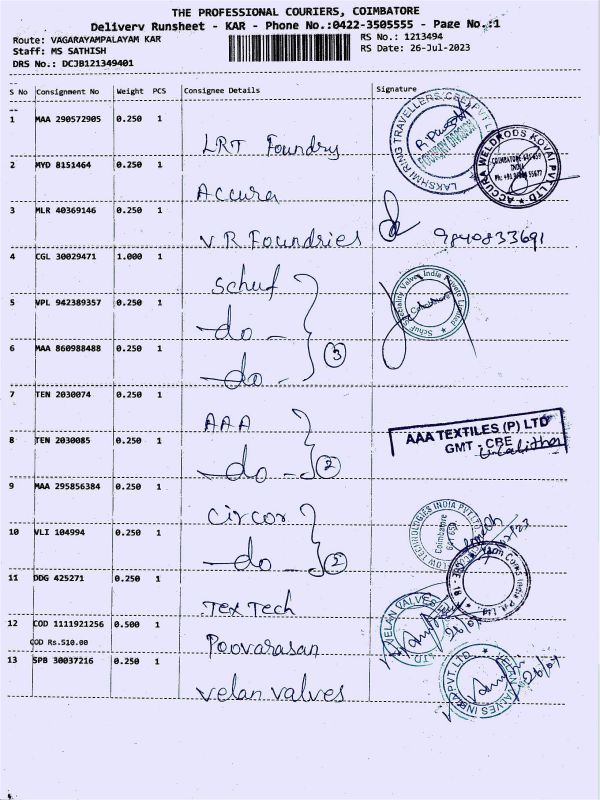 THE PROFESSIONAL COURIERS, COIMBATORE
Delivery Runsheet - KAR - Phone No.:0422-3505555 - Page No.:1
Route: VAGARAYAMPALAYAM KAR
RS No.: 1213494
Staff: MS SATHISH
RS Date: 26-Jul-2023
DRS No.: DCJB121349401
S No Consignment No Weight PCS Consignee Details Signature
1 MAA 290572905 0.250 1 LRT Foundry
LAKSHMI RING TRAVELLERS (CBE) PVT LTD
FOUNDRY DIVISION
2 MYD 8151464 0.250 1 Accura
ACCURA WELDRODS KOVAI PVT LTD
COIMBATORE
INDIA
3 MLR 40369146 0.250 1 VR Foundries 9840833691
4 CGL 30029471 1.000 1 Schuf
Schuf Speciality Valves India Private Limited
5 VPL 942389357 0.250 1 -do-
6 MAA 860988488 0.250 1 -do- 3
7 TEN 2030074 0.250 1 AAA
AAA TEXTILES (P) LTD
GMT - CBE
8 TEN 2030085 0.250 1 -do- 2
9 MAA 295856384 0.250 1 Circor
FLOW TECHNOLOGIES INDIA PVT LTD
Coimbatore
10 VLI 104994 0.250 1 -do- 2
11 DDG 425271 0.250 1 TexTech
12 COD 1111921256 0.500 1 Poovarasan
COD Rs.510.00
VELAN VALVES
13 SPB 30037216 0.250 1 Velan Valves
VELAN VALVES INDIA PVT LTD